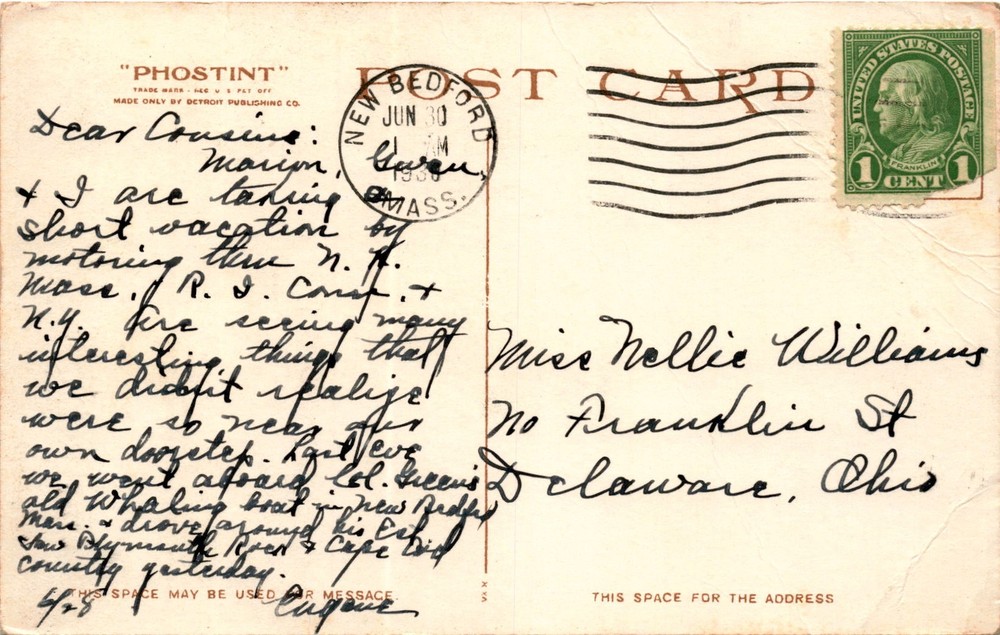 "PHOSTINT"
TRADE MARK - REG U S PAT OFF
MADE ONLY BY DETROIT PUBLISHING CO.
POST CARD
NEW BEDFORD
JUN 30
1 AM
MASS.
UNITED STATES POSTAGE
FRANKLIN
1 CENT 1
Dear Cousins:
Marion, Gwen,
& I are taking a
short vacation by
motoring thru N. H.
Mass., R. I. Conn. +
N.Y. Are seeing many
interesting things that
we didn't realize
were so near our
own doorstep. Last eve
we went aboard Col. Green's
old Whaling boat in New Bedford
Mass. & drove around his Est.
Saw Plymouth Rock & Cape Cod
country yesterday.
Eugene
Miss Nellie Williams
No Franklin St
Delaware, Ohio
THIS SPACE MAY BE USED FOR MESSAGE.
THIS SPACE FOR THE ADDRESS